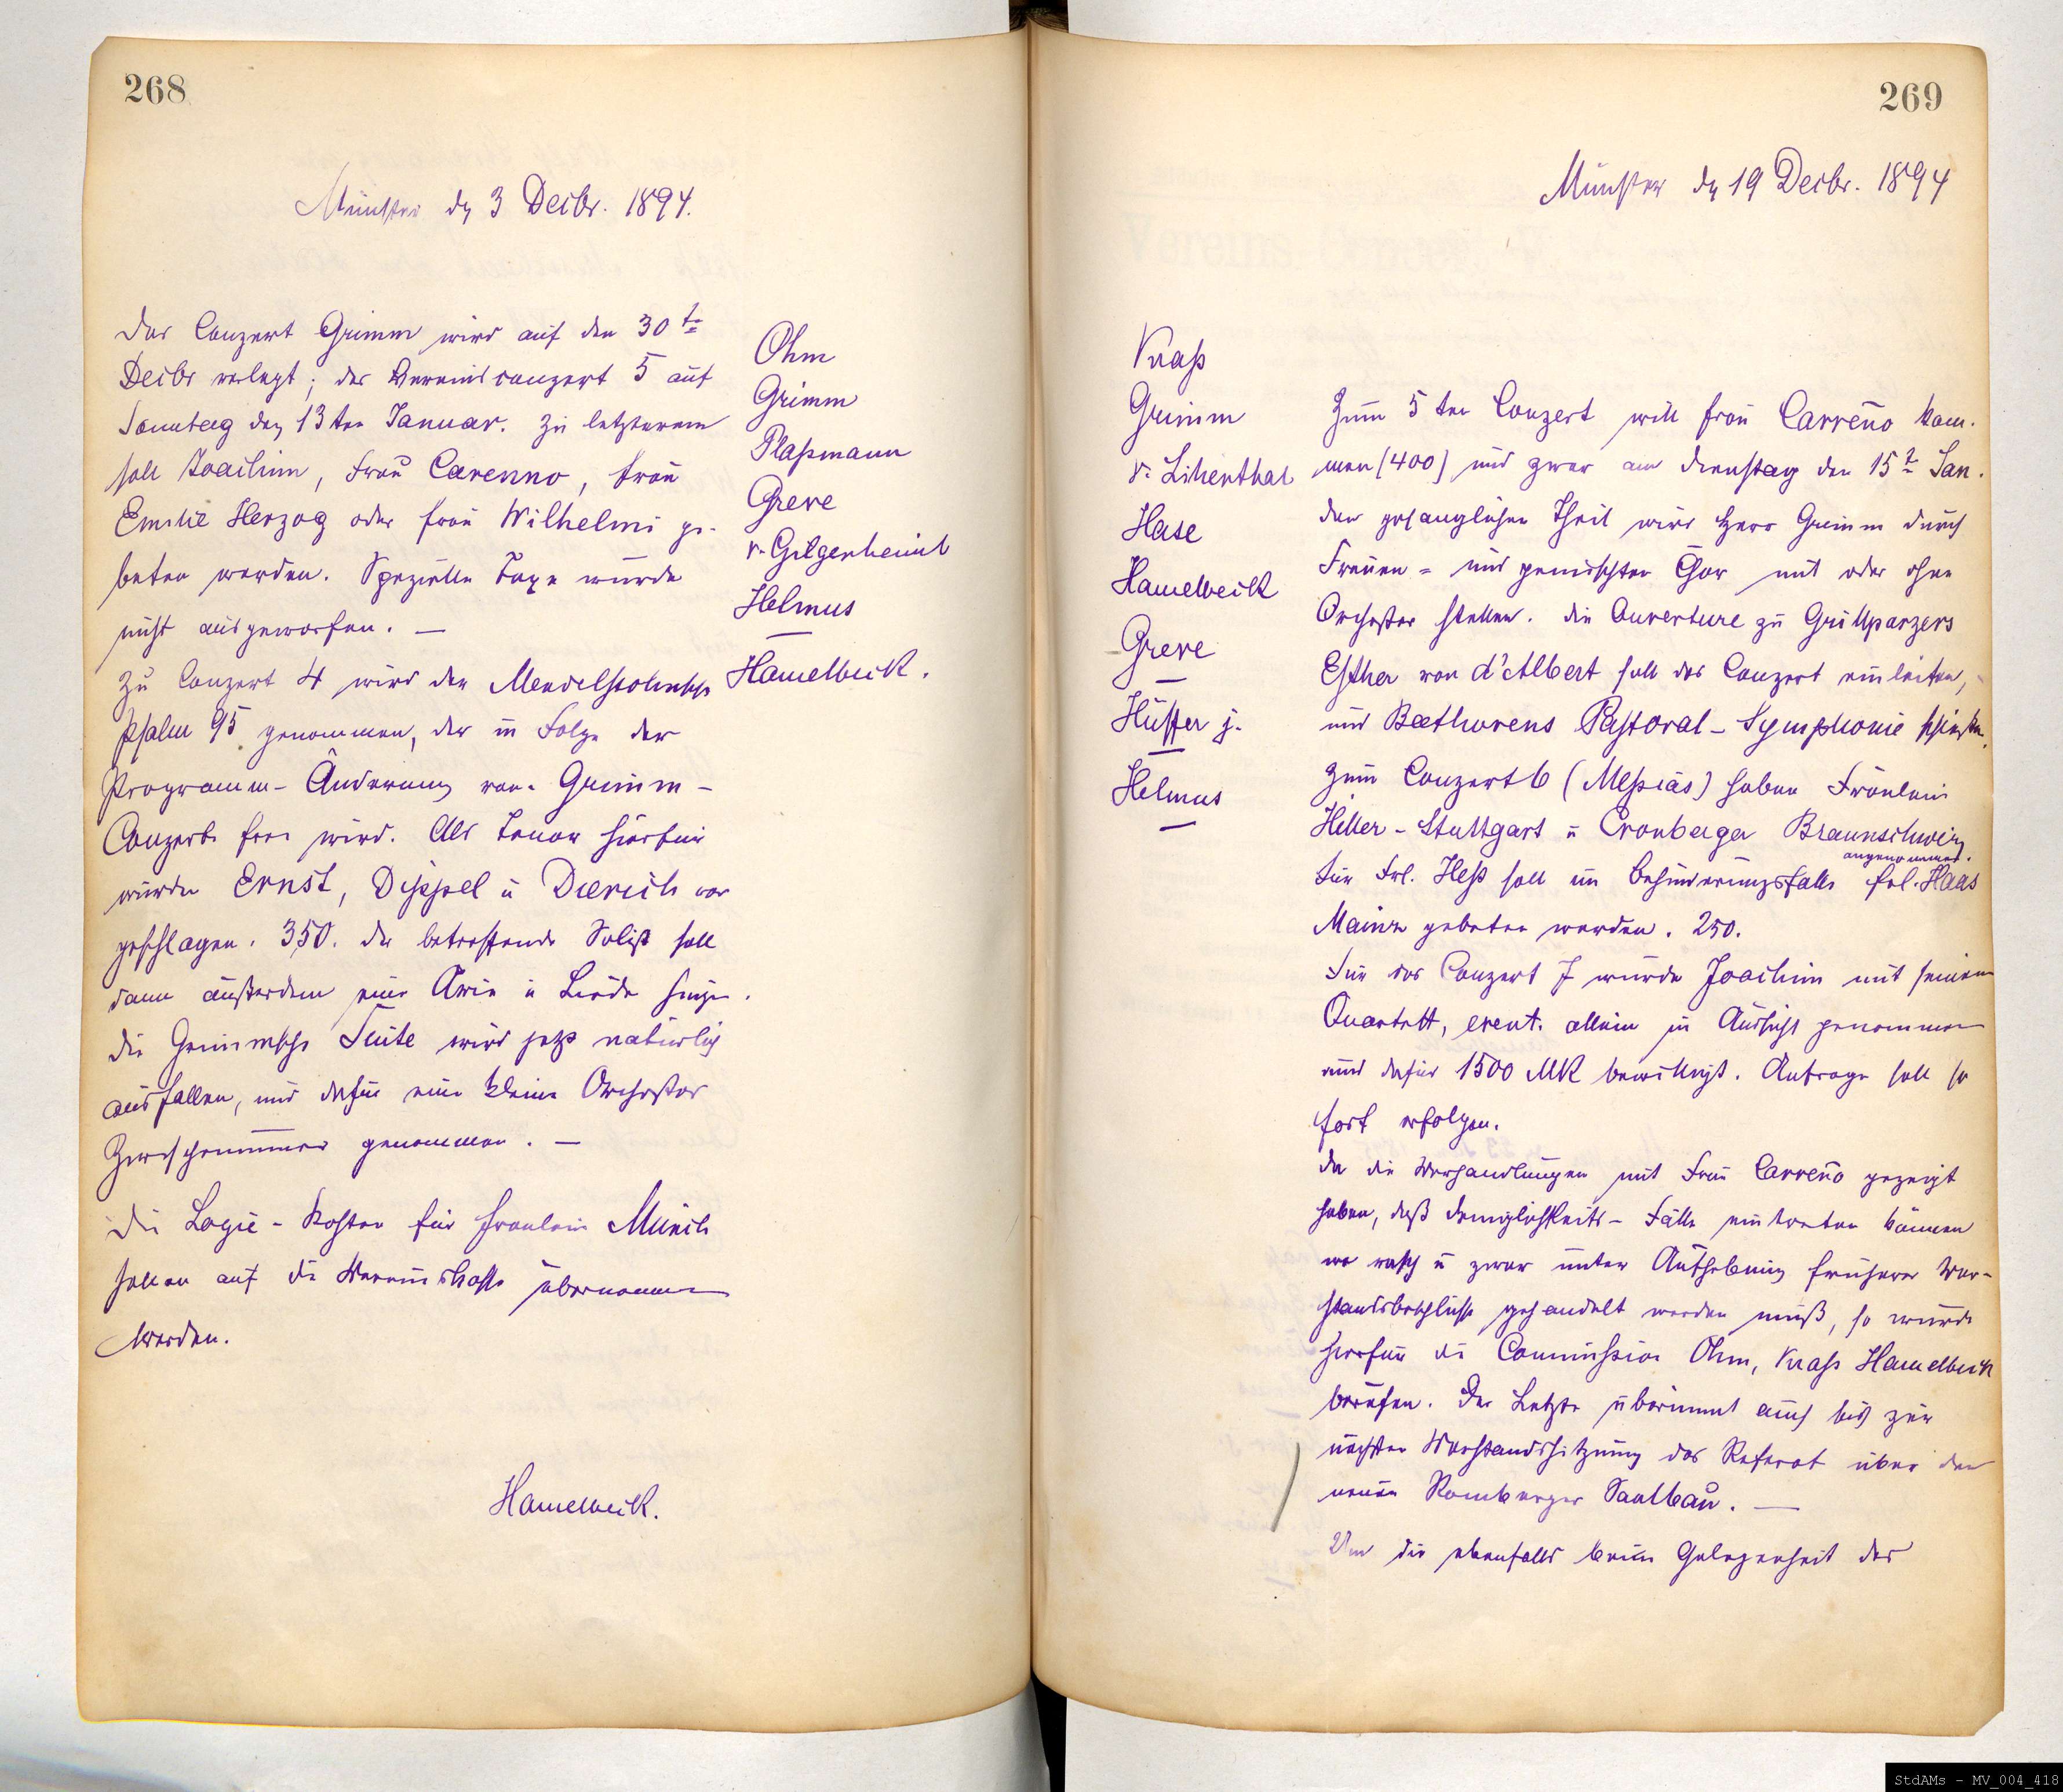 268
Münster d 3 Decbr. 1894.
Das Conzert Grimm wird auf den 30t
Decbr verlegt; das Vereinsconzert 5 auf
Sonntag den 13ten Januar. Zu letzterem
soll Joachim, Frau Carenno, Frau
Emilie Herzog oder Frau Wilhelmi ge-
beten werden. Spezielle Taxe wurde
nicht ausgeworfen. —
Zu Conzert 4 wird der Mendelssohnsche
Psalm 95 genommen, der in Folge der
Programm-Änderung von Grimm-
Conzert frei wird. Als Tenor hierfür
wurden Ernst, Dippel u Dierich vor
geschlagen. 350. Der betreffende Solist soll
dann außerdem eine Arie u Lieder singen.
Die Grimmsche Suite wird jetzt natürlich
ausfallen, und dafür eine kleine Orchester
Zwischennummer genommen. —
Die Logie-Kosten für Fräulein Münch
sollen auf die Vereinskasse übernommen
werden.
Hamelbeck.
Ohm
Grimm
Plaßmann
Greve
v. Gilgenheimb
Helmus
Hamelbeck.
269
Münster d 19 Decbr. 1894
Kraß
Grimm
v. Lilienthal
Hase
Hamelbeck
Greve
Hüffer j.
Helmus
Zum 5ten Conzert will Frau Carreño kom-
men (400) und zwar am Dienstag den 15t Jan.
Den gesanglichen Theil wird Herr Grimm durch
Frauen= und gemischten Chor mit oder ohne
Orchester stellen. Die Ouverture zu Grillparzers
Esther von d'Albert soll das Conzert einleiten,
und Beethovens Pastoral-Symphonie schließen.
Zum Conzert 6 (Messias) haben Fräulein
Hiller-Stuttgart u Cronberger Braunschweig
angenommen.
Für Frl. Heß soll im Behinderungsfalle Frl. Haas
Mainz gebeten werden. 250.
Für das Conzert 7 wurde Joachim mit seinem
Quartett, event. allein in Aussicht genommen
und dafür 1500 MK bewilligt. Anfrage soll so
fort erfolgen.
Da die Verhandlungen mit Frau Carreño gezeigt
haben, daß Dringlichkeits-Fälle eintreten können
wo rasch u zwar unter Aufhebung früherer Vor-
standsbeschlüsse gehandelt werden muß, so wurde
hierfür die Commission Ohm, Kraß Hamelbeck
berufen. Der Letzte übernimmt auch bis zur
nächsten Vorstandssitzung das Referat über den
neuen Romberger Saalbau. —
Um die ebenfalls beim Gelegenheit der
StdAMs - MV_004_418